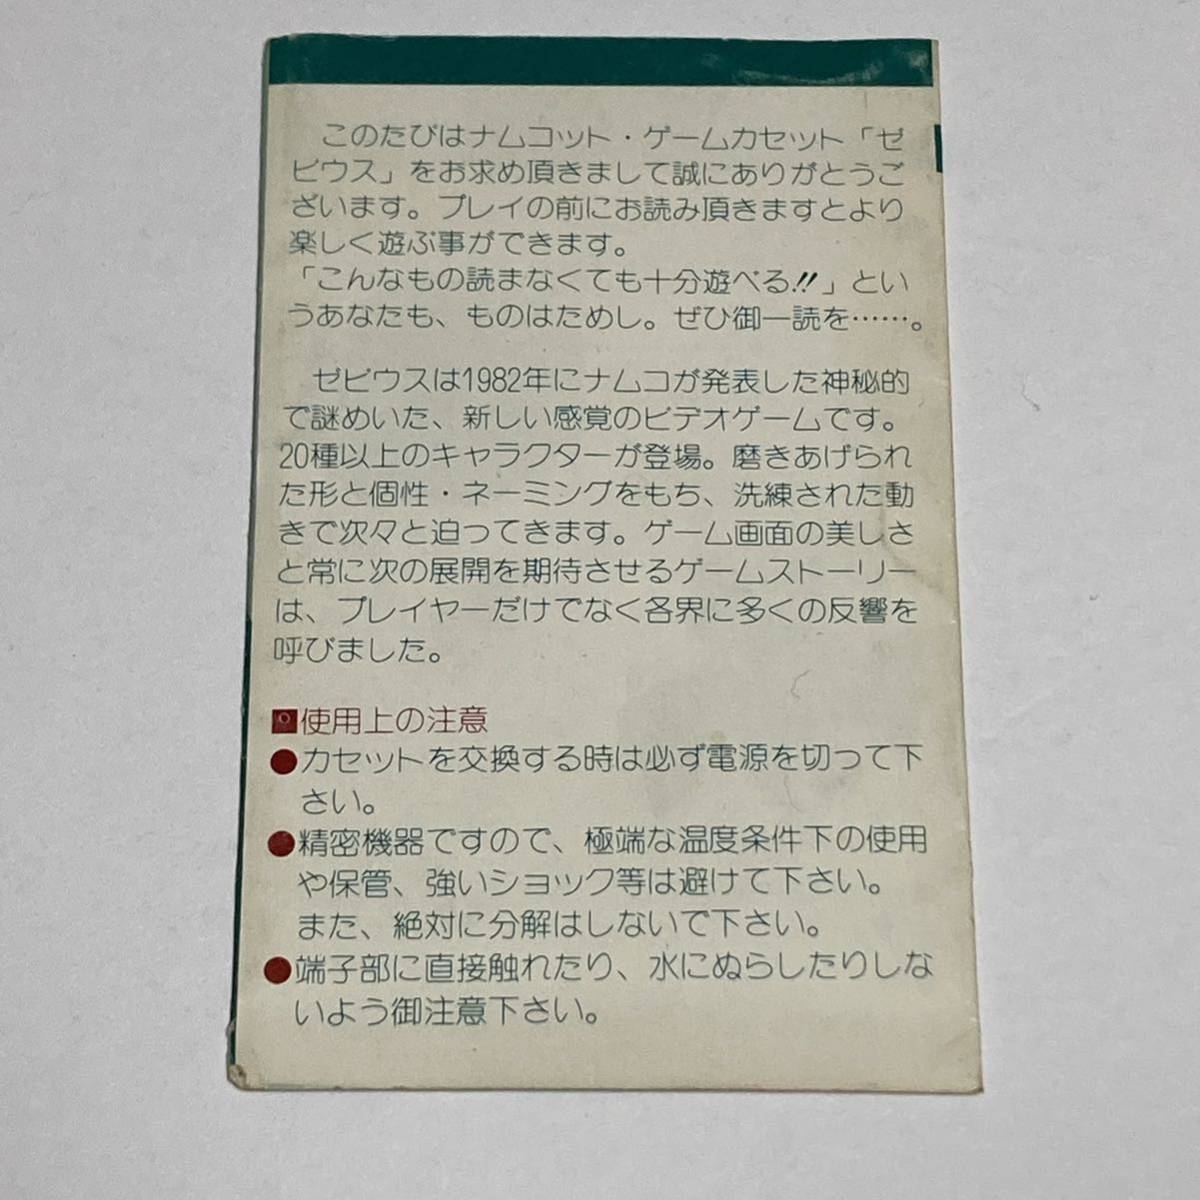 このたびはナムコット・ゲームカセット「ゼ
ビウス」をお求め頂きまして誠にありがとうご
ざいます。プレイの前にお読み頂きますとより
楽しく遊ぶ事ができます。
「こんなもの読まなくても十分遊べる!!」とい
うあなたも、ものはためし。ぜひ御一読を……。
ゼビウスは1982年にナムコが発表した神秘的
で謎めいた、新しい感覚のビデオゲームです。
20種以上のキャラクターが登場。磨きあげられ
た形と個性・ネーミングをもち、洗練された動
きで次々と迫ってきます。ゲーム画面の美しさ
と常に次の展開を期待させるゲームストーリー
は、プレイヤーだけでなく各界に多くの反響を
呼びました。
■使用上の注意
●カセットを交換する時は必ず電源を切って下
さい。
●精密機器ですので、極端な温度条件下の使用
や保管、強いショック等は避けて下さい。
また、絶対に分解はしないで下さい。
●端子部に直接触れたり、水にぬらしたりしな
いよう御注意下さい。